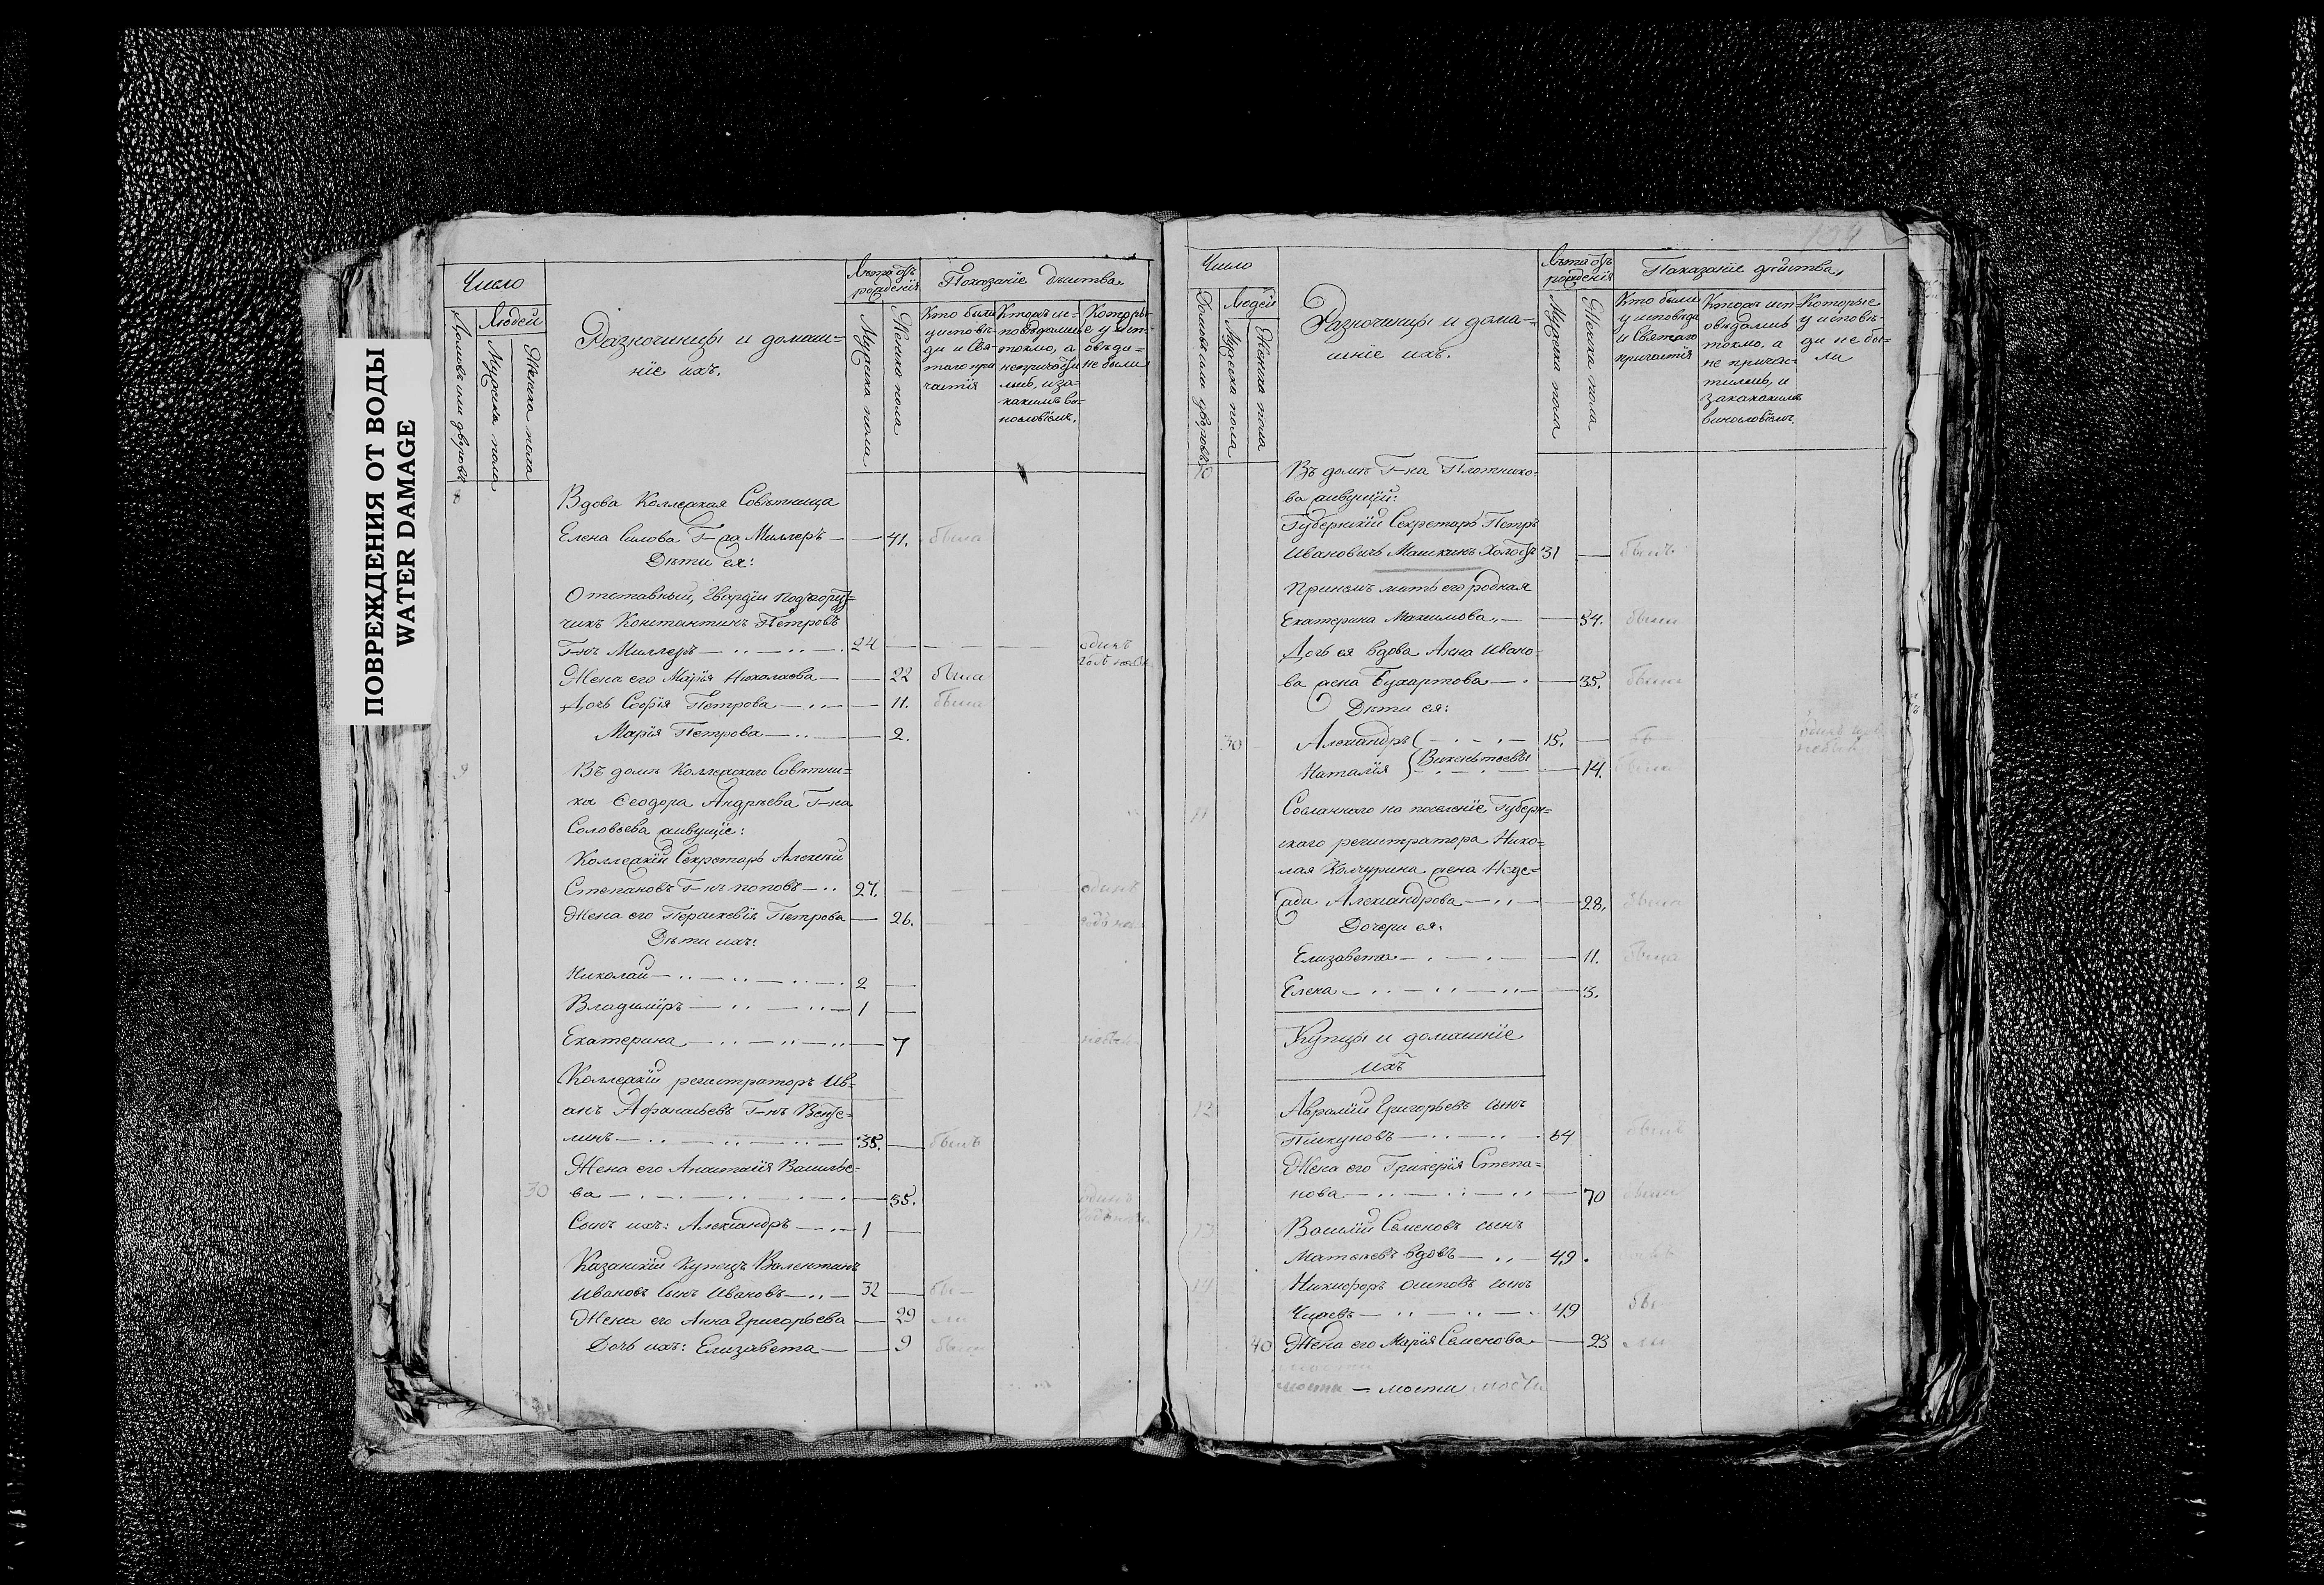 ПОВРЕЖДЕНИЯ ОТ ВОДЫ
WATER DAMAGE
Число
Людей
Домовъ или дворовъ
Мужеска пола
Женска пола
Разночинцы и домаш=
ніе ихъ.
Лѣта отъ
рожденія
Мужеска пола
Женска пола
Показаніе дѣиства
Кто были
у исповѣ=
ди и Свя=
таго при
частія
Которые
у исп=
овѣди=
не были
Вдова Коллежская Совѣтница
Елена Г-жа Миллеръ — 41. была
Дѣти ея:
Отставный, Гвардіи подпору=
чикъ Константинъ Петровъ
Г-нъ Миллеръ — 24 — одинъ
Жена его Марія Николаева — 22 была
Дочь Софія Петрова — 11. была
Марія Петрова — 2.
9 Въ домѣ Коллежскаго Совѣтни=
ка Ѳеодора Андреева Г-на
Соловьева живущіе:
Коллежскій Секретарь Алексѣй
Степановъ Г-нъ Поповъ — 27. — одинъ
Жена его Параскевія Петрова — 26.
Дѣти ихъ:
Николай — 2 —
Владиміръ — 1 —
Екатерина — 7
Коллежскій регистраторъ Ив=
анъ Афанасьевъ Г-нъ
линъ — 35. — былъ
Жена его Анастасія Василье=
30 ва — 35. одинъ
Сынъ ихъ: Александръ — 1 —
Казанскій Купецъ Валентинъ
Ивановъ сынъ Ивановъ — 32 — бы—
Жена его Анна Григорьева — 29 ли
Дочь ихъ: Елизавета — 9 была
Число
Людей
Домовъ или дворовъ
Мужеска пола
Женска пола
Разночинцы и дома=
шніе ихъ.
Лѣта отъ
рожденія
Мужеска пола
Женска пола
Показаніе дѣйства,
Кто были
у исповѣди
и Святаго
причастія
Которые
у исповѣ=
ди не бы=
ли
10 Въ домѣ Г-на Плотнико=
ва живущій:
Губернскій Секретарь Петръ
Ивановичъ Машкинъ холостъ 31 — былъ
При немъ мать его родная
Екатерина Максимова — 54. была
Дочь ея вдова Анна Ивано=
ва жена Бухартова — 35. была
Дѣти ея:
30 Александръ — 15. —
Наталія } Викентьевы — 14. была
11 Сосланнаго на поселеніе Губерн=
скаго регистратора Нико=
лая Колчурина жена Наде=
жда Александрова — 28. была
Дочери ея:
Елизавета — 11. была
Елена — 3.
Купцы и домашніе
ихъ
12 Авраамій Григорьевъ сынъ
Пикуновъ — 64 былъ
Жена его Гликерія Степа=
нова — 70 была
13 Василій Семеновъ сынъ
вдовъ — 49.
14 Никифоръ Осиповъ сынъ
Чижевъ — 49 бы
40 Жена его Марія Семенова — 23 ли